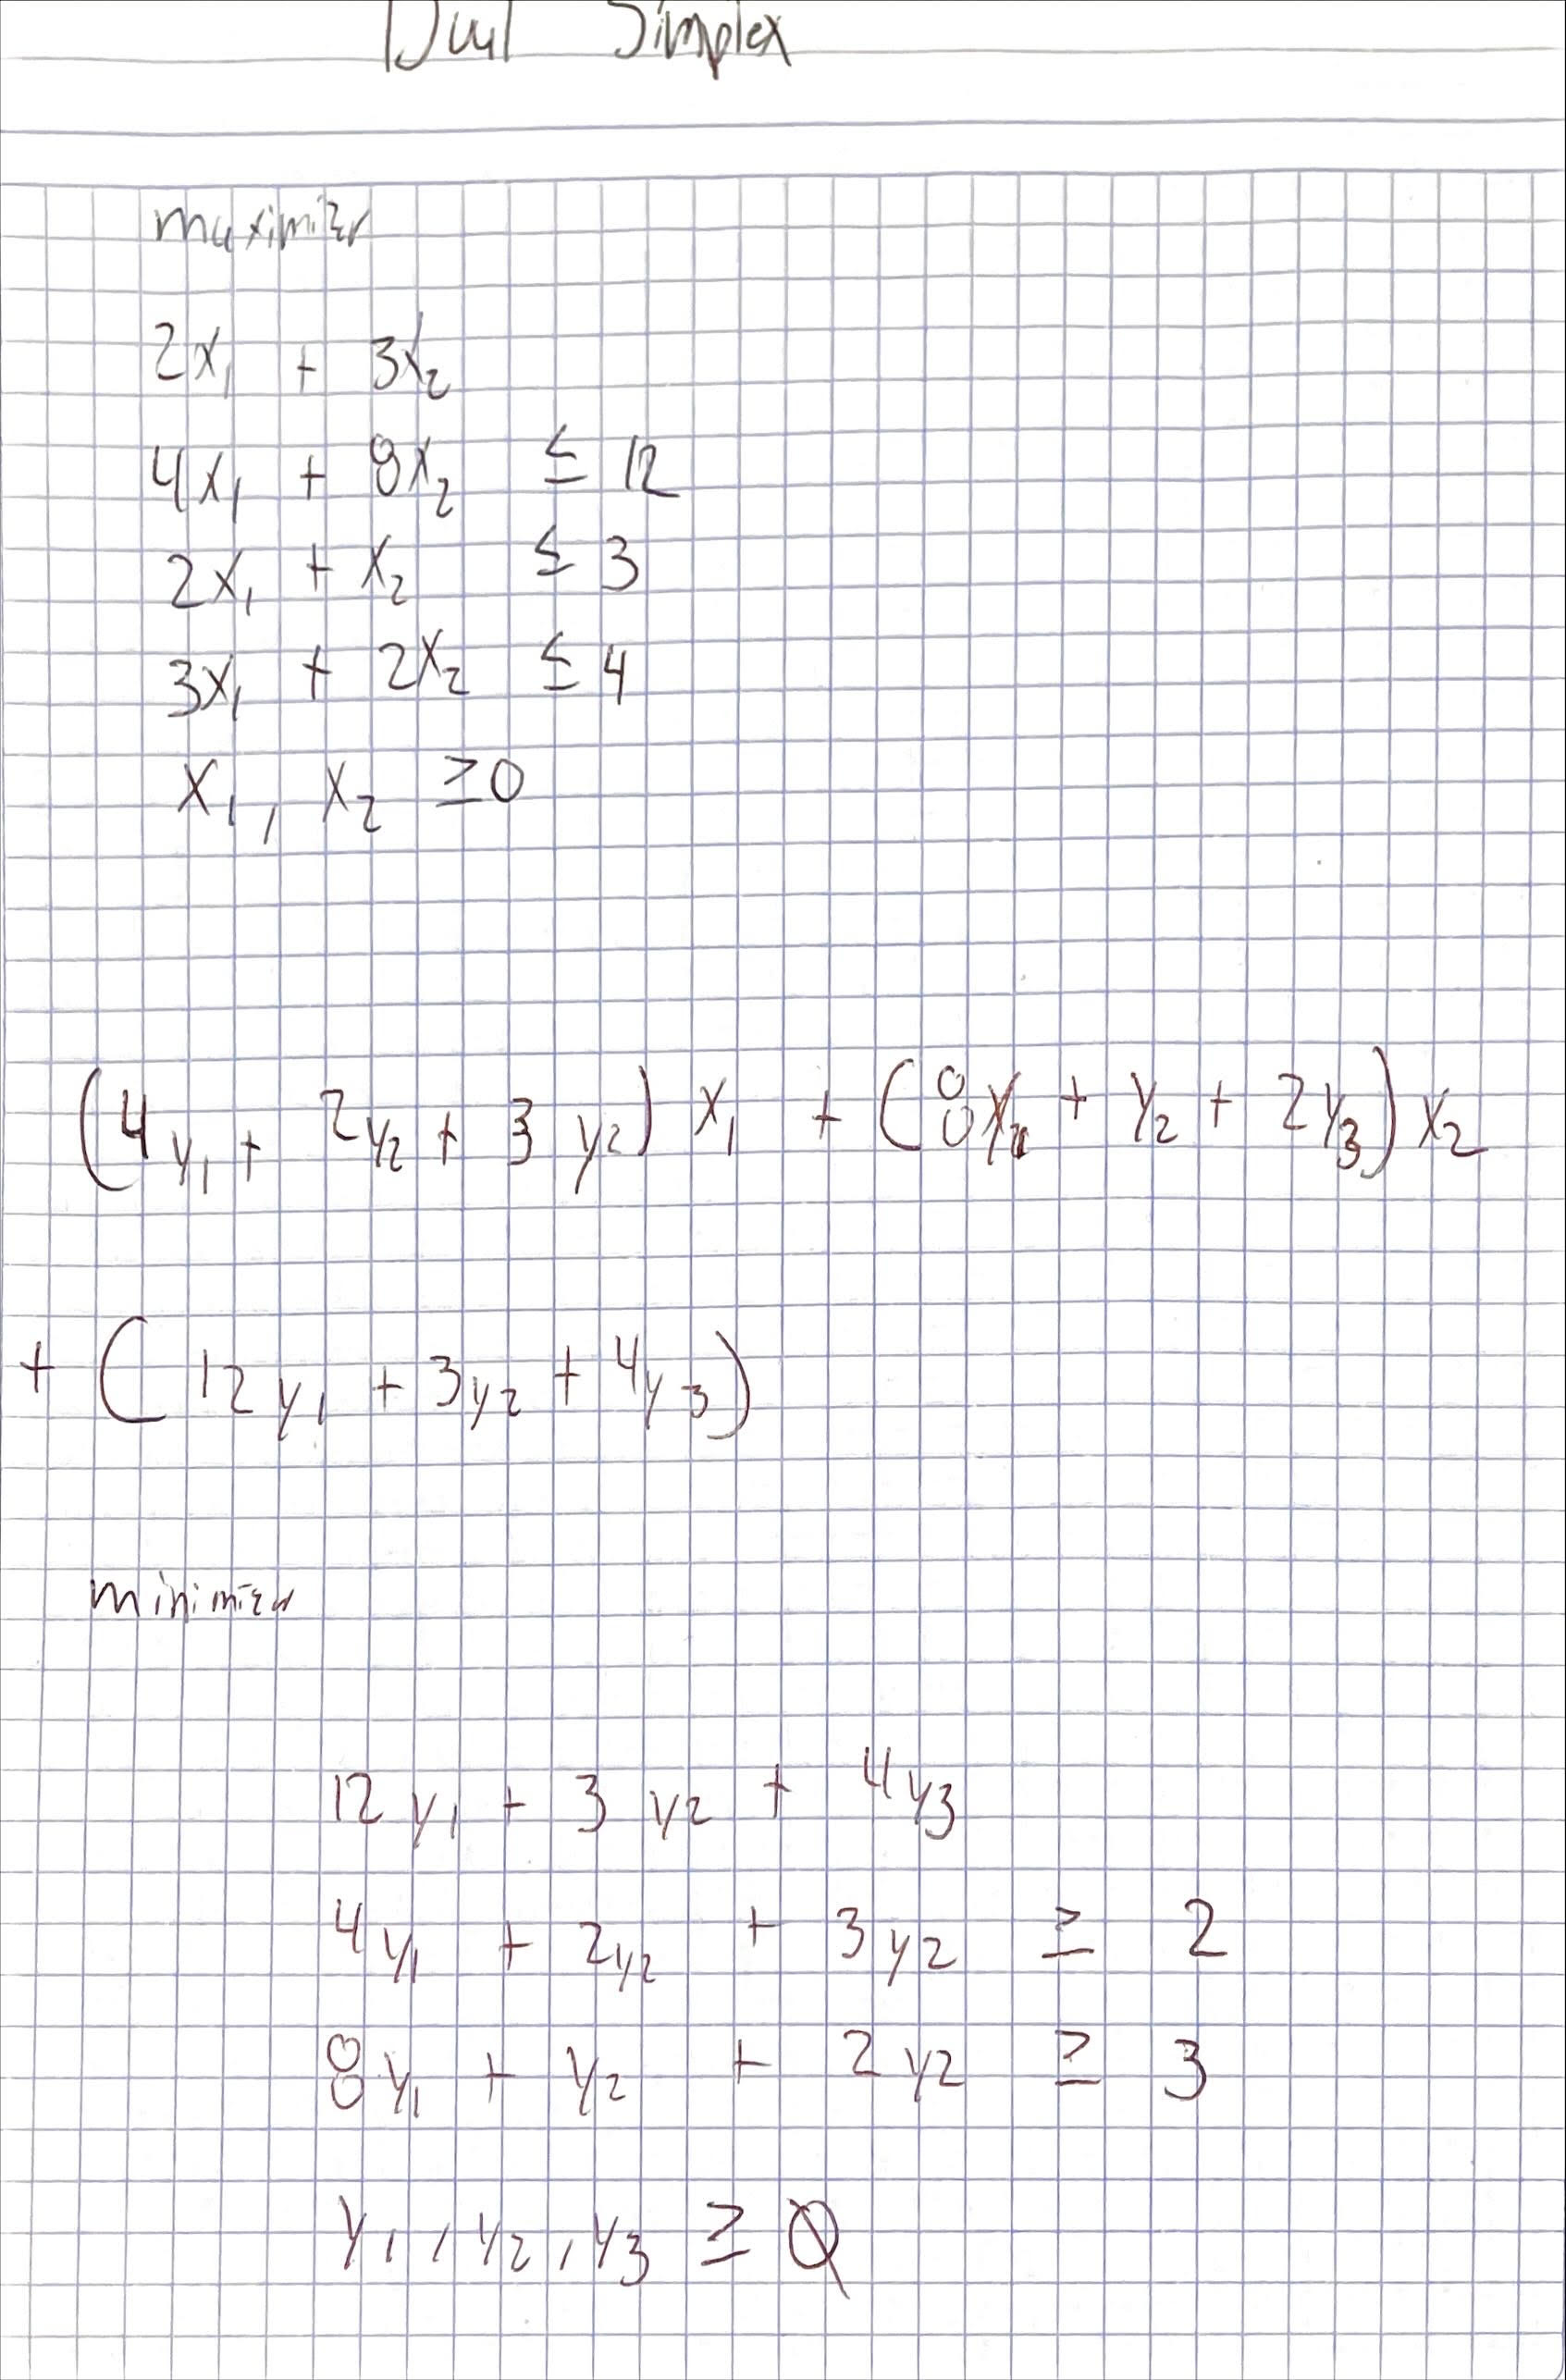 Dual Simplex
maximize
2x₁ + 3x₂
4x₁ + 8x₂ ≤ 12
2x₁ + x₂ ≤ 3
3x₁ + 2x₂ ≤ 4
x₁, x₂ ≥ 0
(4y₁ + 2y₂ + 3y₂) x₁ + (8y₁ + y₂ + 2y₃) x₂
+ (12y₁ + 3y₂ + 4y₃)
minimize
12y₁ + 3y₂ + 4y₃
4y₁ + 2y₂ + 3y₂ ≥ 2
8y₁ + y₂ + 2y₂ ≥ 3
y₁, y₂, y₃ ≥ 0